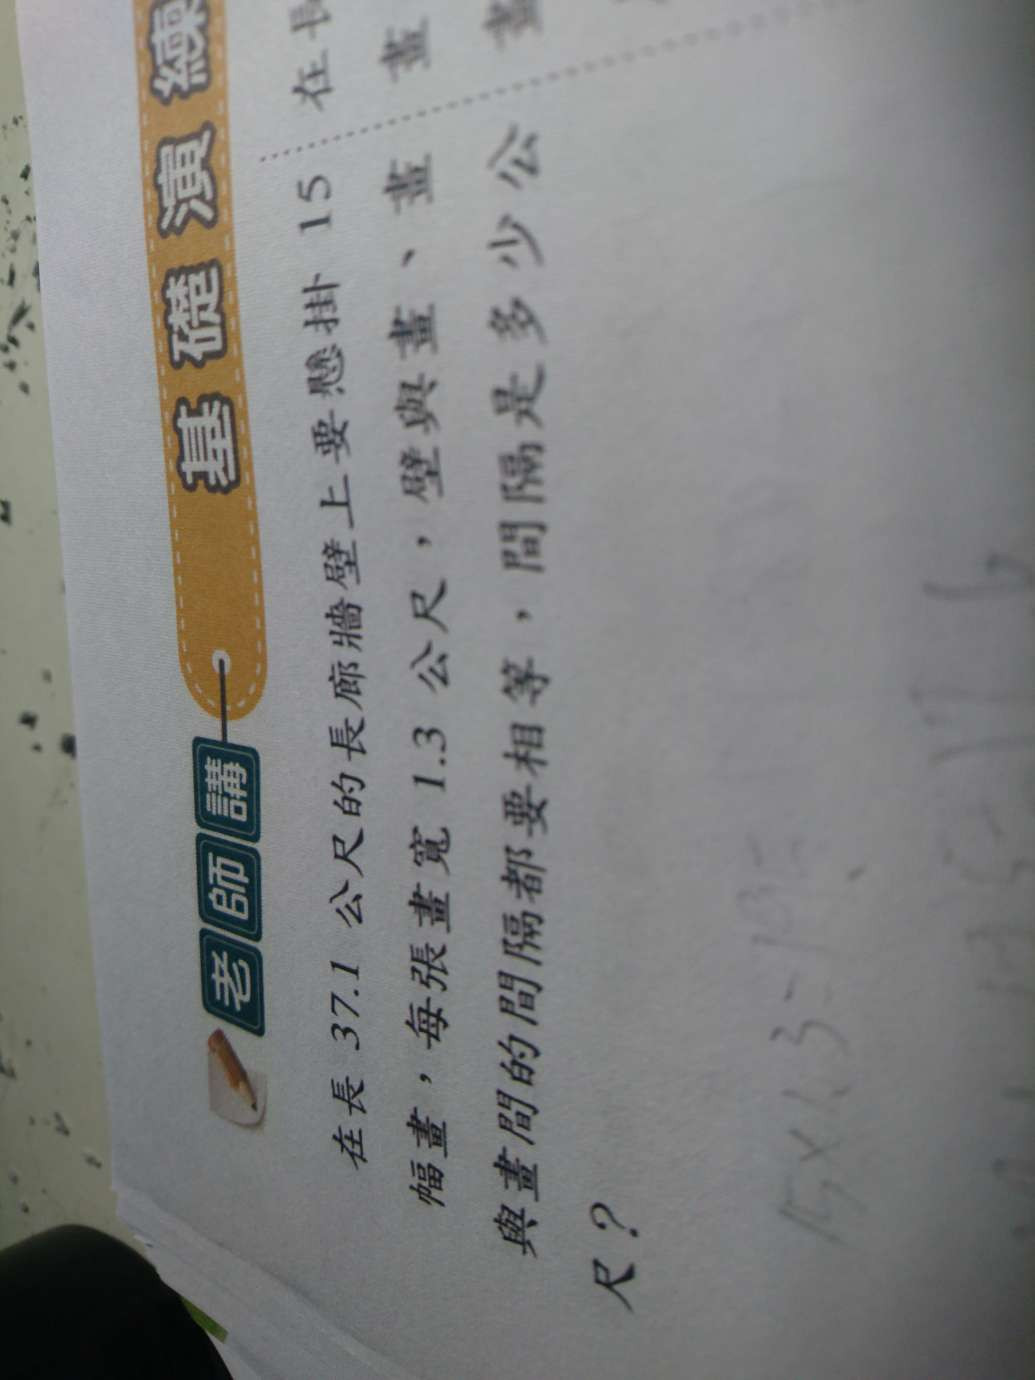 老師講
基礎演練
在長 37.1 公尺的長廊牆壁上要懸掛 15
幅畫，每張畫寬 1.3 公尺，壁與畫、畫
與畫間的間隔都要相等，間隔是多少公
尺？
在長
畫
畫
15×1.3=19.5